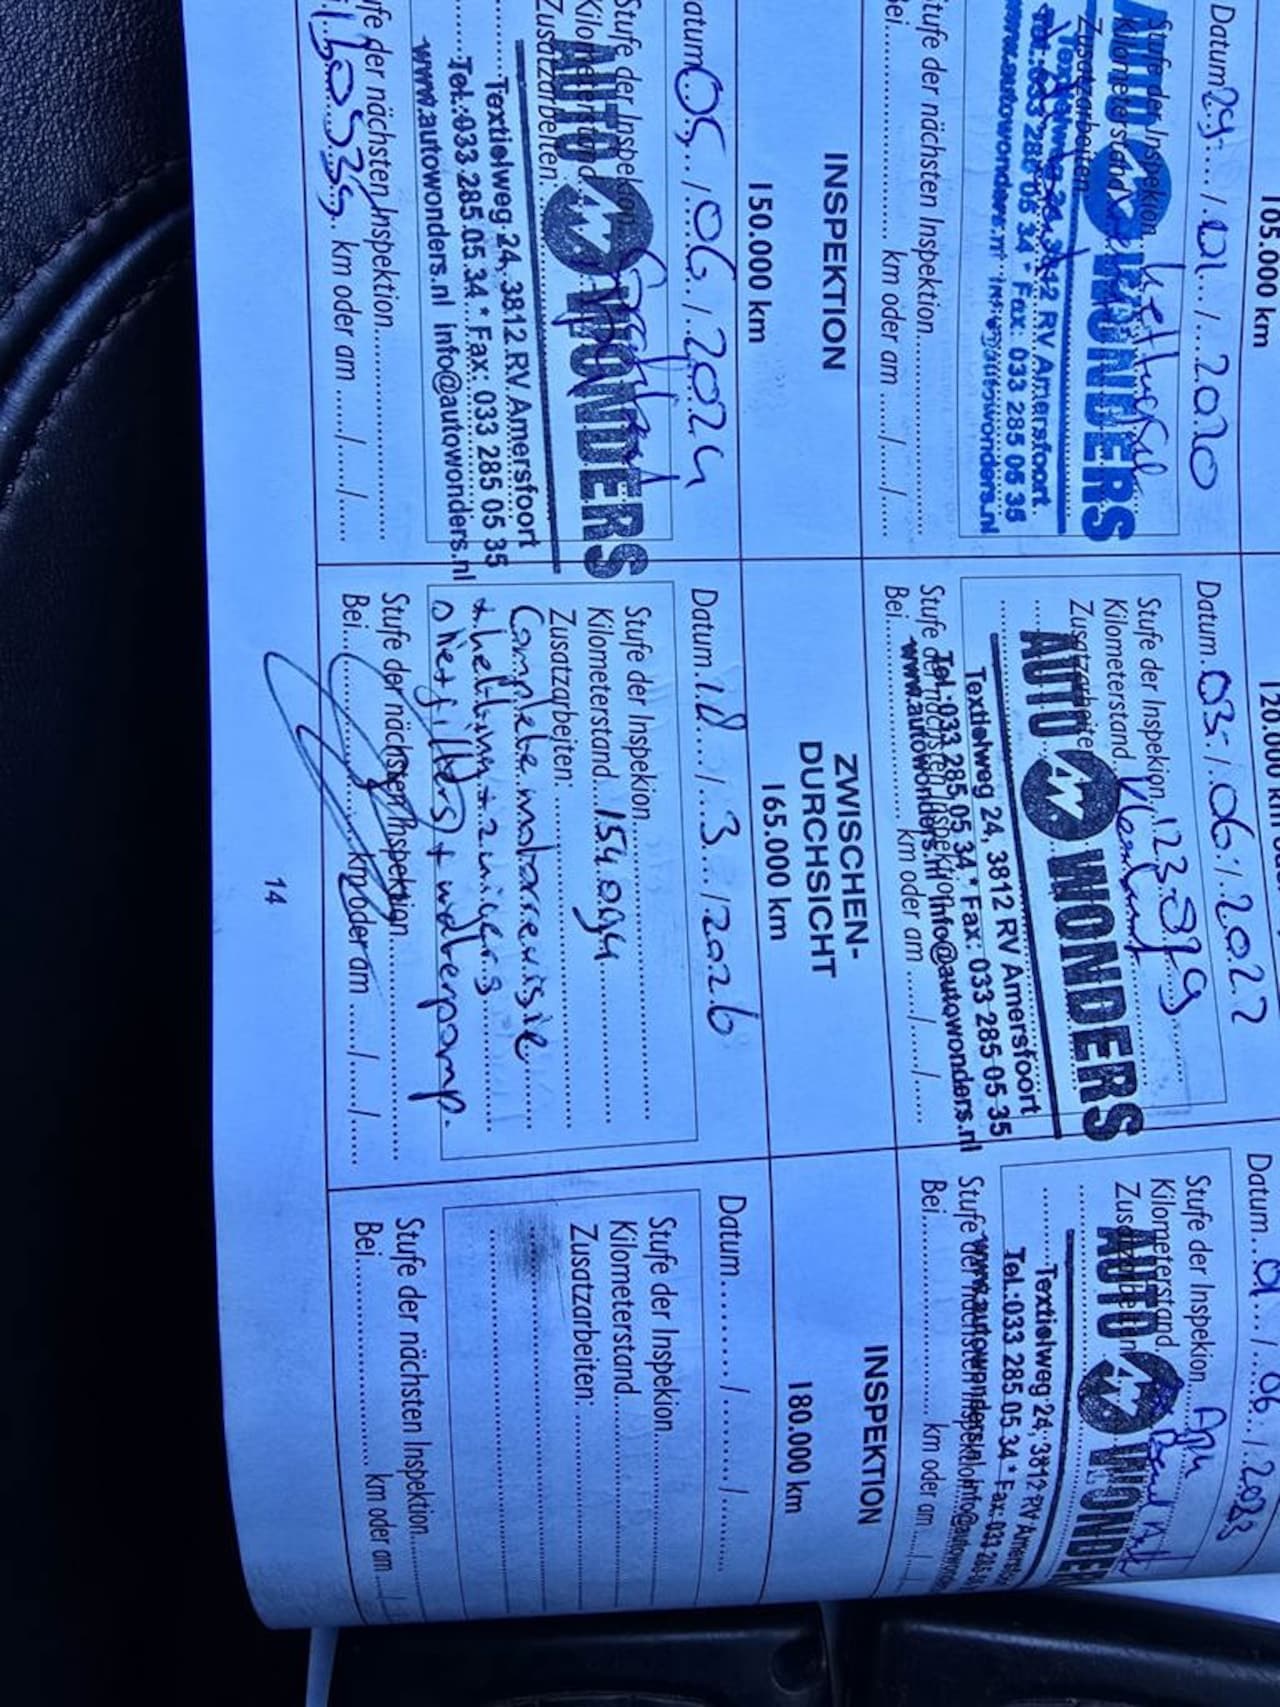 105.000 km
Datum 29 / 01 / 2020
Stufe der Inspekion
Kilometerstand
Zusatzarbeiten
AUTO WONDERS
Textielweg 24, 3812 RV Amersfoort
Tel.:033 285 05 34 * Fax: 033 285 05 35
www.autowonders.nl info@autowonders.nl
Stufe der nächsten Inspektion
Bei km oder am / /
120.000 km
Datum 03 / 06 / 2022
Stufe der Inspekion
Kilometerstand
Zusatzarbeiten
AUTO WONDERS
Textielweg 24, 3812 RV Amersfoort
Tel.:033 285 05 34 * Fax: 033 285 05 35
www.autowonders.nl info@autowonders.nl
Stufe der nächsten Inspektion
Bei km oder am / /
Datum 01 / 06 / 2023
Stufe der Inspekion
Kilometerstand
Zusatzarbeiten
AUTO WONDERS
Textielweg 24, 3812 RV Amersfoort
Tel.:033 285 05 34 * Fax: 033 285
www.autowonders.nl info@autowonders
Stufe der nächsten Inspektion
Bei km oder am /
INSPEKTION
150.000 km
Datum 05 / 06 / 2024
Stufe der Inspekion
Kilometerstand
Zusatzarbeiten:
AUTO WONDERS
Textielweg 24, 3812 RV Amersfoort
Tel.:033 285 05 34 * Fax: 033 285 05 35
www.autowonders.nl info@autowonders.nl
Stufe der nächsten Inspektion
km oder am / /
ZWISCHEN-
DURCHSICHT
165.000 km
Datum 18 / 3 / 2026
Stufe der Inspekion
Kilometerstand 154.094
Zusatzarbeiten:
Complete motorrevisie
+ waterpomp.
Stufe der nächsten Inspektion
Bei km oder am / /
INSPEKTION
180.000 km
Datum / /
Stufe der Inspekion
Kilometerstand
Zusatzarbeiten:
Stufe der nächsten Inspektion
Bei km oder am /
14